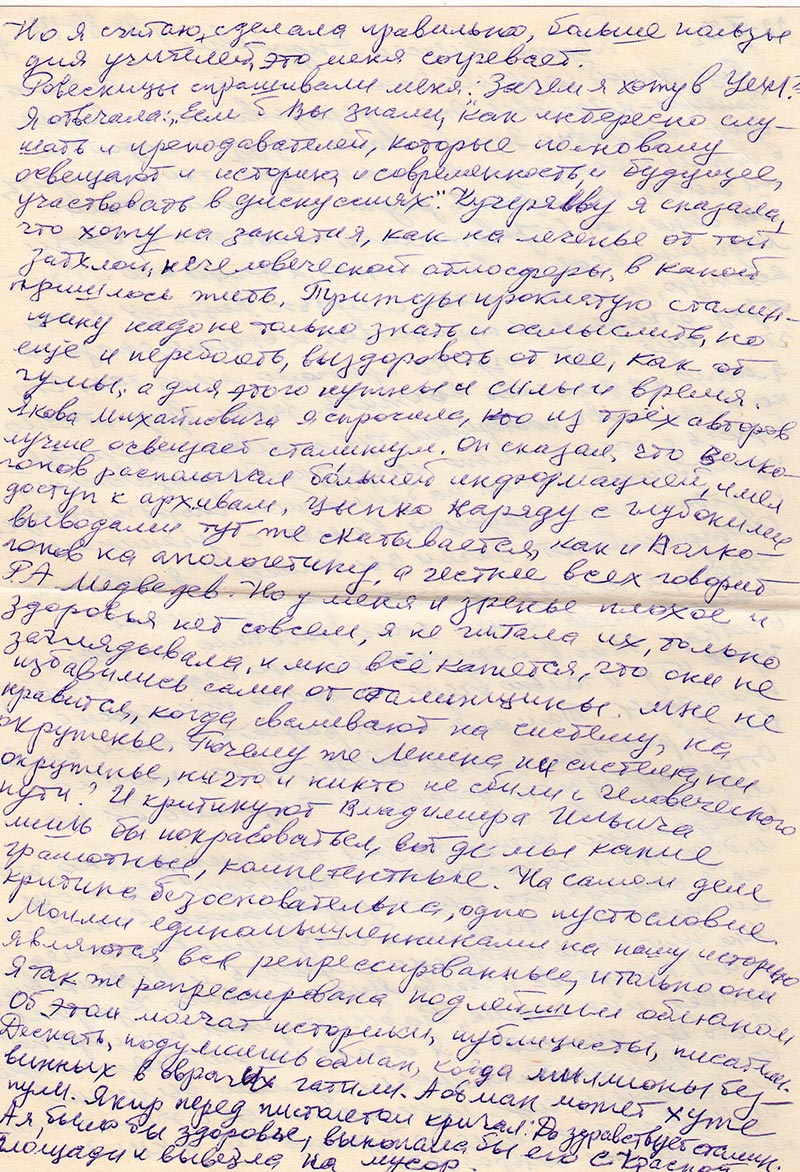 Но я считаю, сделала правильно, больше пользы
для учителей, это меня согревает.
Ровесницы спрашивали меня: Зачем я хожу в
Я отвечала: „Если б Вы знали, как интересно слу-
шать и преподавателей, которые по новому
освещают и историю и современность и будущее,
участвовать в дискуссиях". Кучеряеву я сказала,
что хожу на занятия, как на леченье от той
затхлой, нечеловеческой атмосферы, в какой
пришлось жить. Трижды проклятую сталин-
щину надо не только знать и осмыслить, но
ещё и перебороть, выздороветь от нее, как от
чумы, а для этого нужны и силы и время.
Якова Михайловича я спросила, кто из трёх авторов
лучше освещает сталинизм. Он сказал, что Волко-
гонов располагал большей информацией, имел
доступ к архивам, Ципко наряду с глубокими
выводами тут же скатывается, как и Волко-
гонов на апологетику, а честнее всех говорит
Р А Медведев. Но у меня и зренье плохое и
здоровья нет совсем, я не читала их, только
заглядывала, и мне всё кажется, что они не
избавились сами от сталинщины. Мне не
нравится, когда сваливают на систему, на
окруженье. Почему же Ленина ни система, ни
окруженье, ничто и никто не сбили с человеческого
пути? И критикуют Владимира Ильича
лишь бы покрасоваться, вот де мы какие
грамотные, компетентные. На самом деле
критика безосновательна, одно пустословие.
Моими единомышленниками на нашу историю
являются все репрессированные, и только они
Я так же репрессирована подлейшим обманом
Об этом молчат историки, публицисты, писатели.
Дескать, подумаешь обман, когда миллионы без-
винных в оврагах гатили. А обман может хуже
пули. Якир перед пистолетом кричал: Да здравствует Сталин.
А я, было бы здоровье, выкопала бы его с Красной
площади и вывезла на мусор.